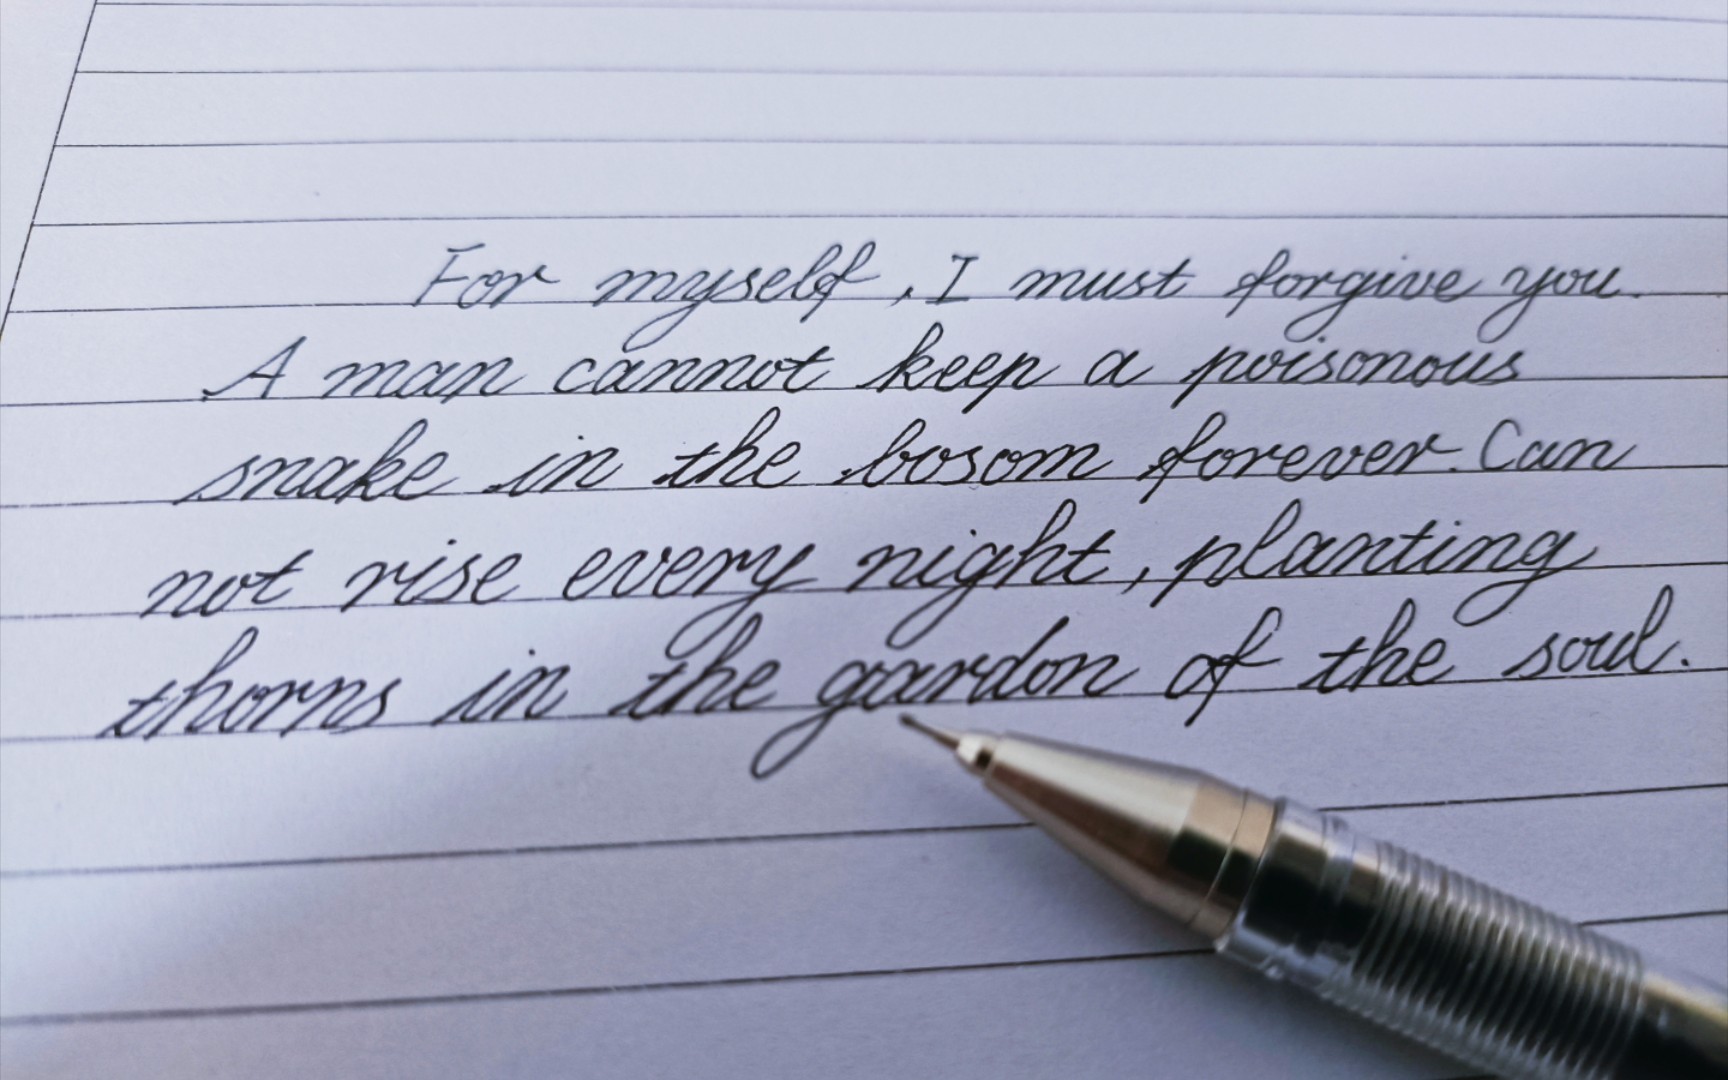 For myself, I must forgive you.
A man cannot keep a poisonous
snake in the bosom forever. Can
not rise every night, planting
thorns in the gardon of the soul.